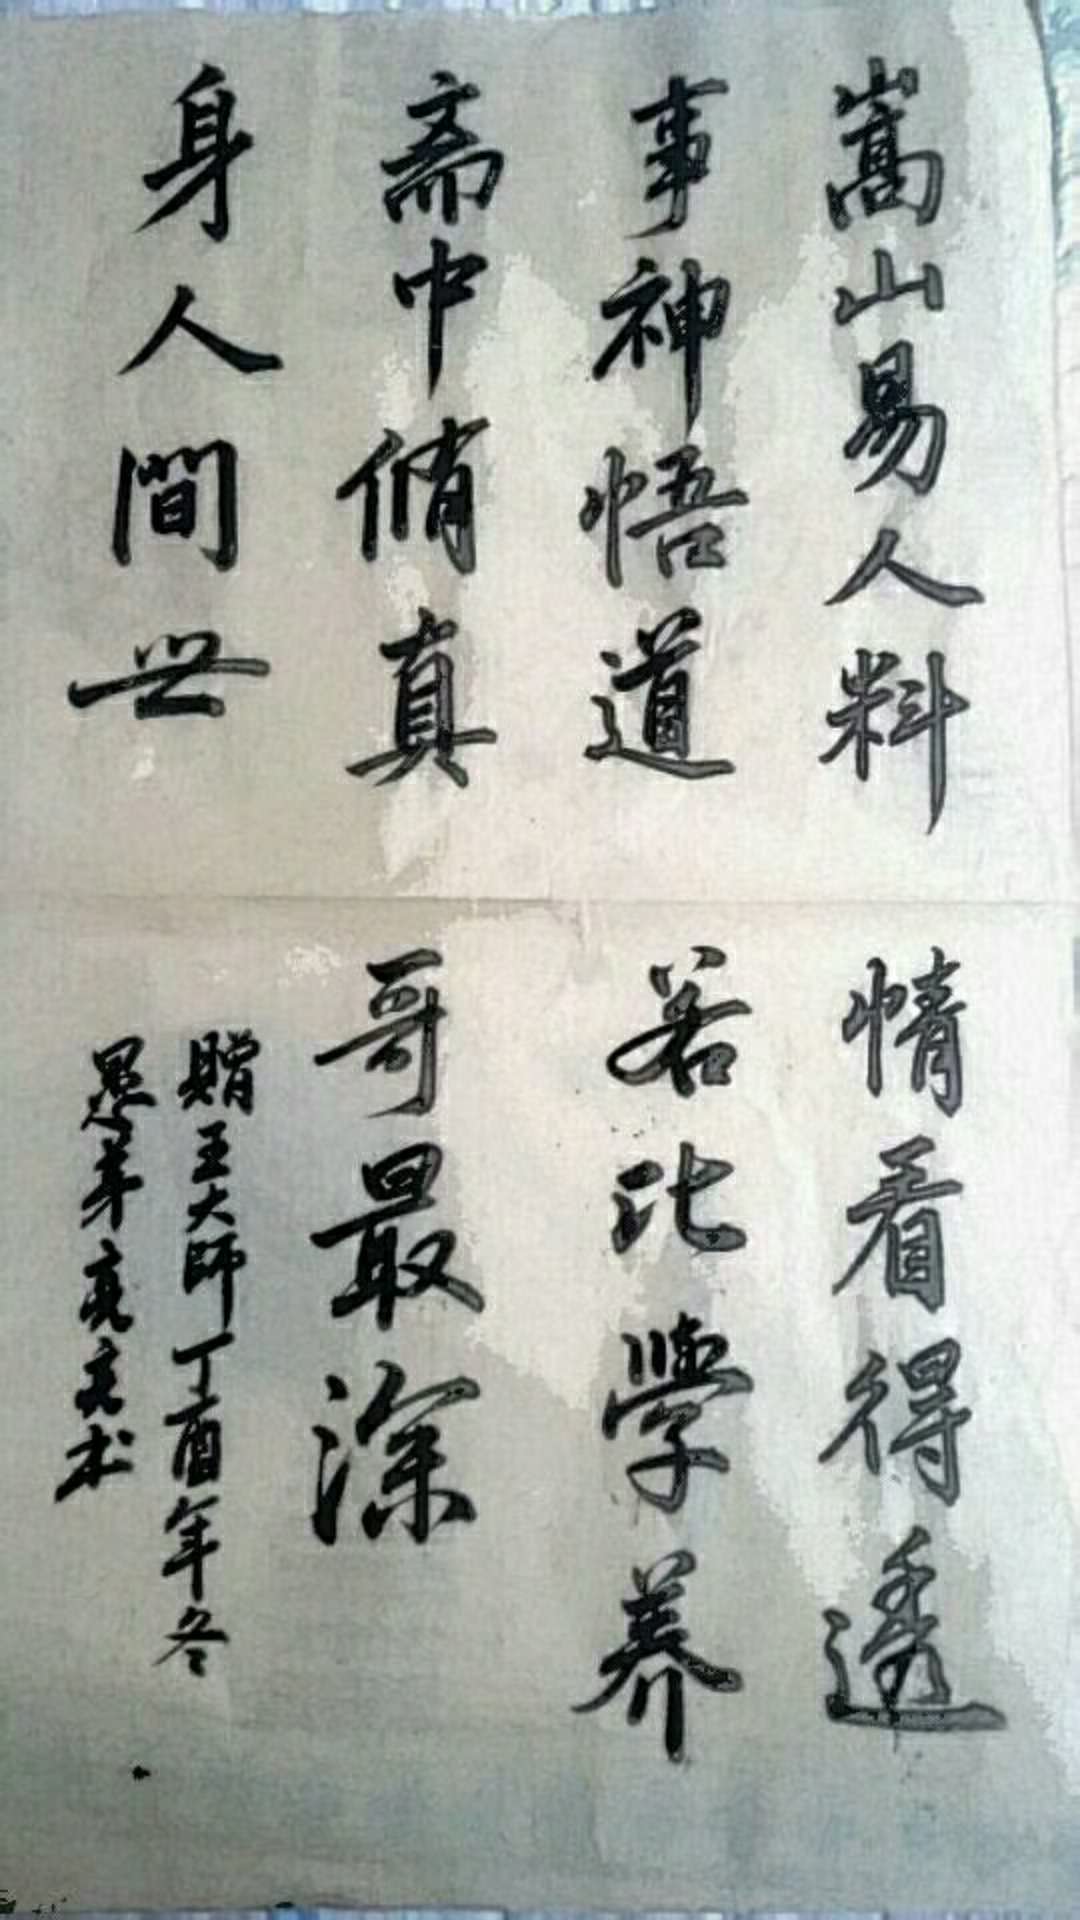 嵩山易人料
事神悟道
斋中脩真
身人間世
情看得透
若比學养
哥最深
贈王大師丁酉年冬
愚弟亮亮